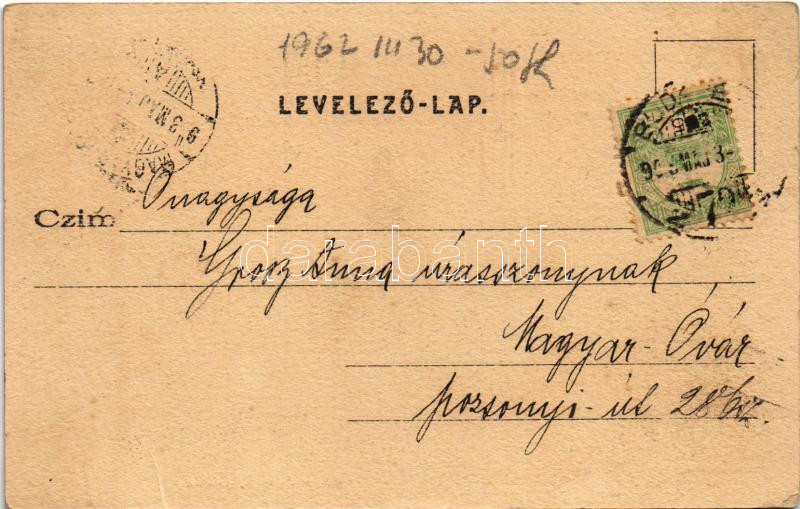 1962 III 30 - 50 f
LEVELEZŐ-LAP.
Czim
Őnagysága
Grosz Anna úrasszonynak
Magyar-Óvár
pozsonyi-út 28 sz.
darabanth.com